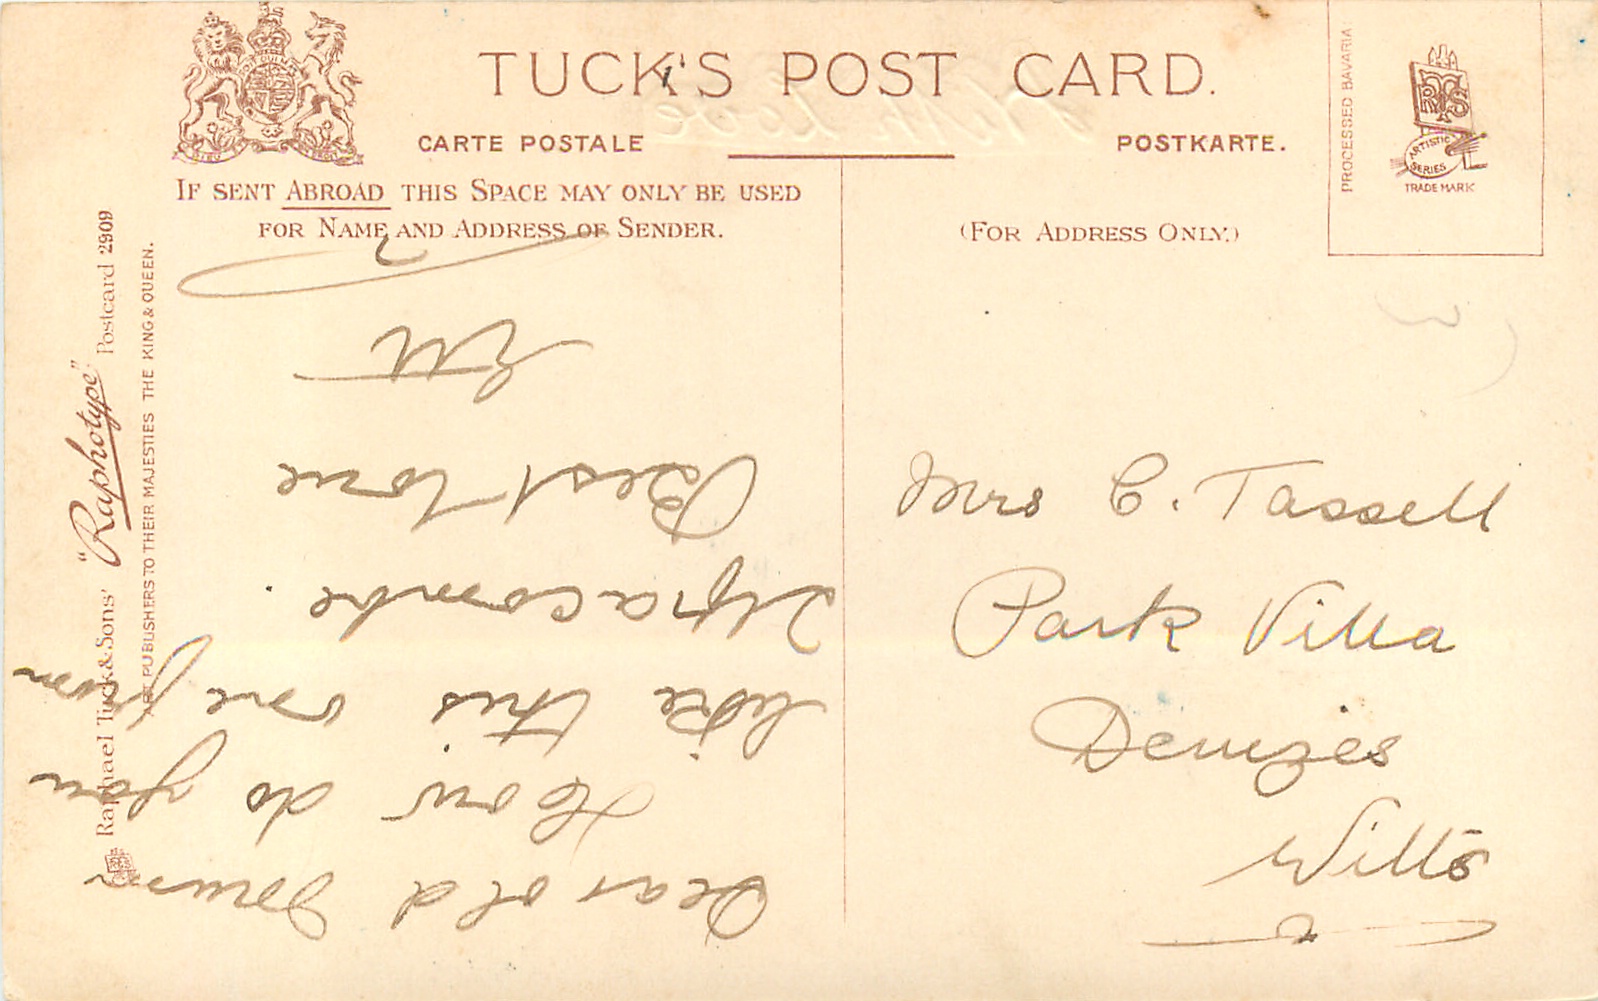 TUCK'S POST CARD.
CARTE POSTALE
POSTKARTE.
IF SENT ABROAD THIS SPACE MAY ONLY BE USED
FOR NAME AND ADDRESS OF SENDER.
(FOR ADDRESS ONLY.)
PROCESSED BAVARIA
RTS
ARTISTIC
SERIES
TRADE MARK
Raphael Tuck & Sons' "Raphotype" Postcard 2909
ART PUBLISHERS TO THEIR MAJESTIES THE KING & QUEEN.
Dear old
How do you
like this one from
Ilfracombe.
Best love
Mrs C. Tassell
Park Villa
Devizes
Wilts